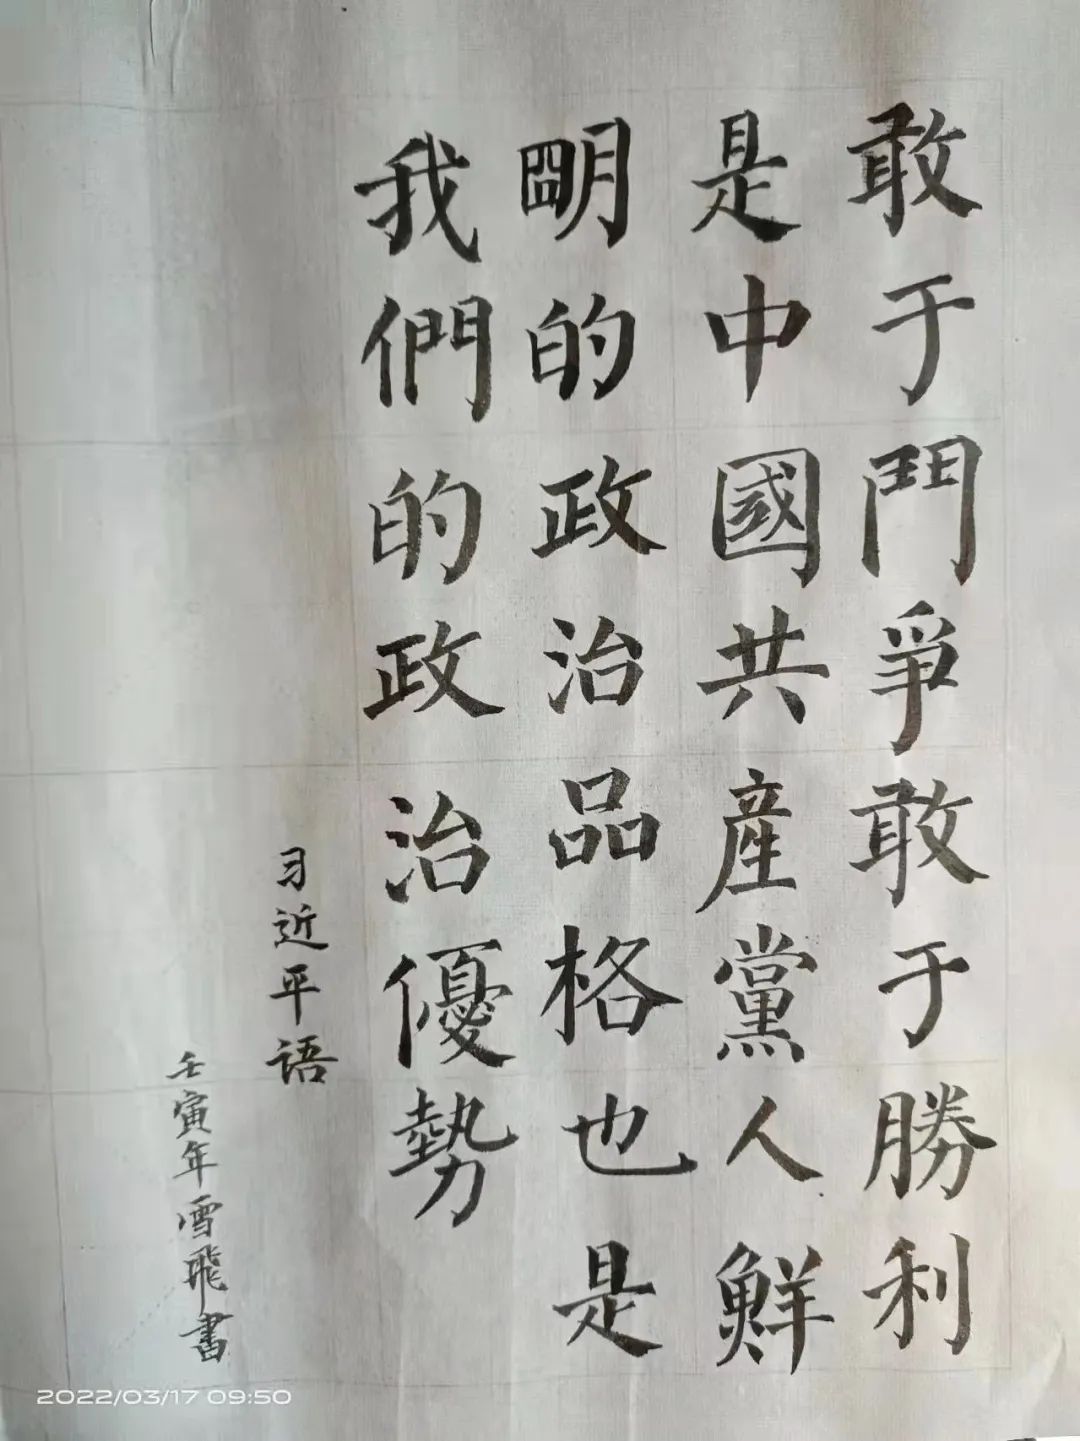 敢于鬥爭敢于勝利
是中國共産黨人鮮
明的政治品格也是
我們的政治優勢
习近平语
壬寅年雪飛書
2022/03/17 09:50